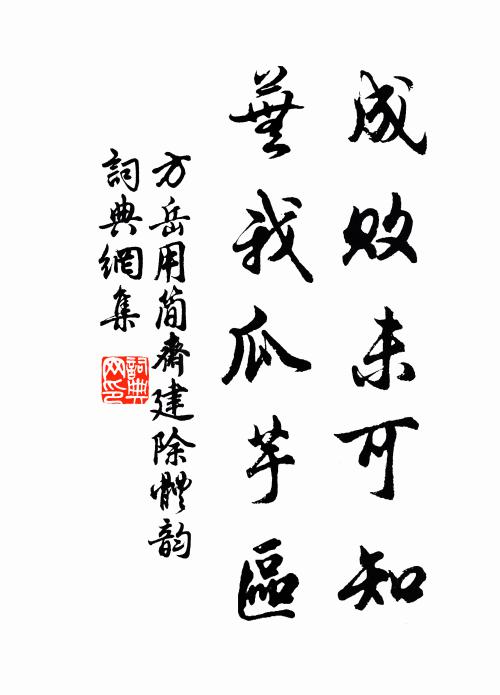 成敗未可知
蕪我瓜芋區
方岳用简齋建除體韵
詞典網集
詞典
网印